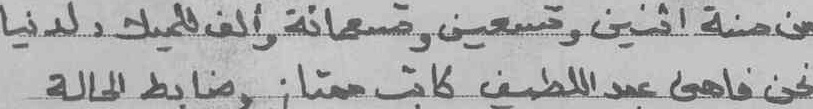 من سنة اثنين وتسعين وتسعمائة وألف للميلاد ولدنيا
نحن فاهى عبد اللطيف كاتب ممتاز وضابط الحالة